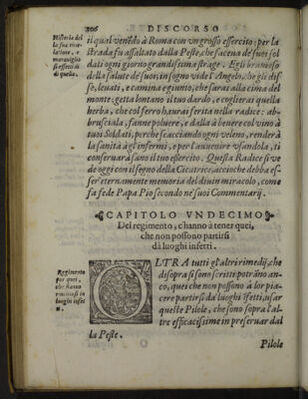 206 DISCORSO
il qual venẽdo à Roma con vn grosso essercito; per la
strada fu assaltato dalla Peste, che facena de suoi sol
dati ogni giorno grandissima strage. Egli bramoso
della salute de' suoi; in sogno vide l'Angelo, che gli dis
se, leuati, e camina e giunto, che sarai alla cima del
monte; getta lontano il tuo dardo, e coglierai quella
herba, che col ferro haurai ferita nella radice: ab-
brusciala, fanne poluere, e dalla à bene re col vino à
tuoi Soldati, perche scacciando ogni veleno, renderà
la sanità à gl'infermi, e per l'auuenire vsandola, ti
conseruarà sano il tuo essercito. Questa Radice si ve
de oggi con il segno della Cicatrice, accioche debba es-
ser' eternamente memoria del diuin miracolo, come
fa fede Papa Pio secondo ne' suoi Commentarij.
Historia del
la sua riue
latione, e
marauiglio
si effetti
di quella.
CAPITOLO VNDECIMO
Del regimento, c'hanno à tener quei,
che non possono partirsi
da luoghi infetti.
Regimento
per quei,
che hanno
luoghi infet
ti.
OLTRA tutti gl'altri rimedij, che
di sopra si sono scritti potrãno an-
co, quei che non possono à lor pia-
cere partirsi da' luoghi iffetti, vsar
queste Pilole, che sono sopra l'al-
tre efficacissime in preseruar dal
la Peste.
Pilole